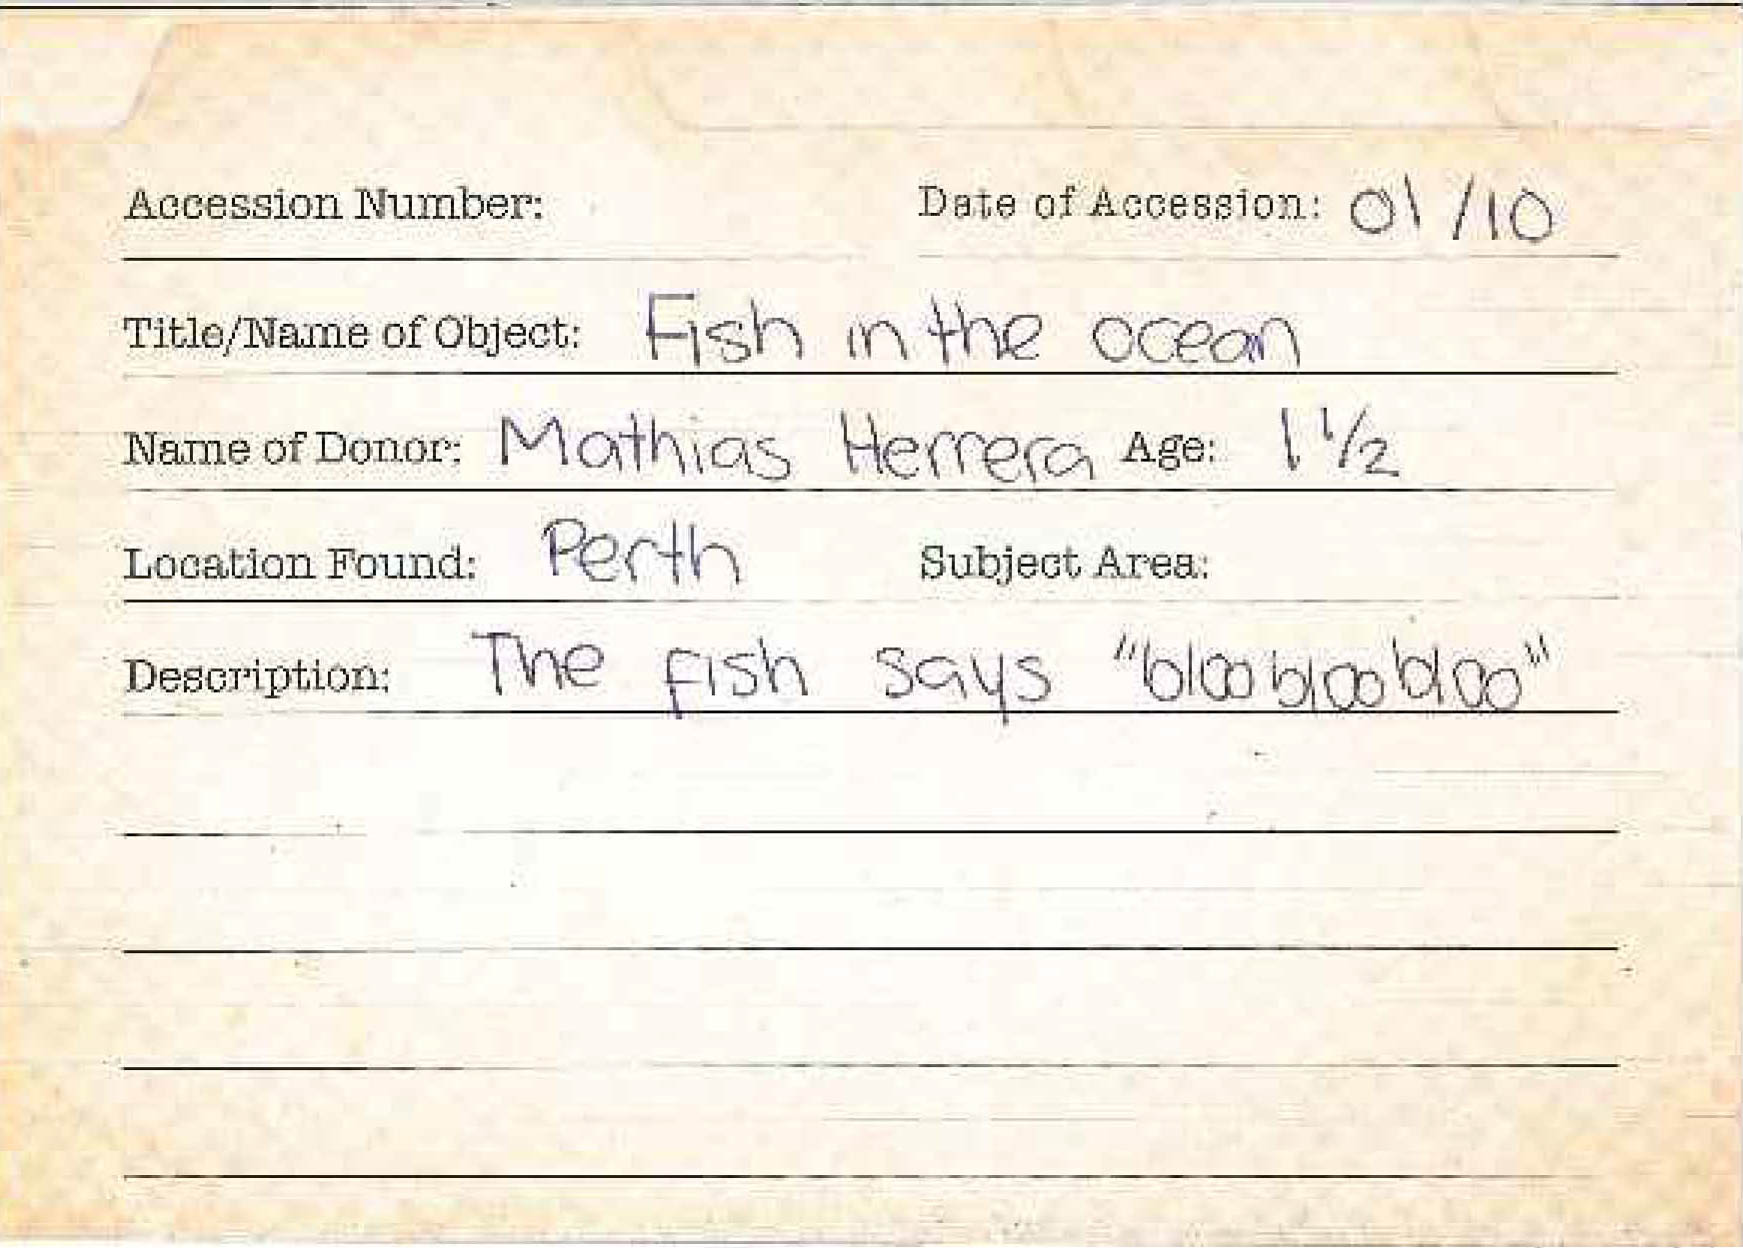 Accession Number: Date of Accession: 01/10
Title/Name of Object: Fish in the ocean
Name of Donor: Mathias Herrera Age: 1 1/2
Location Found: Perth Subject Area:
Description: The fish says "blooblooobloo"